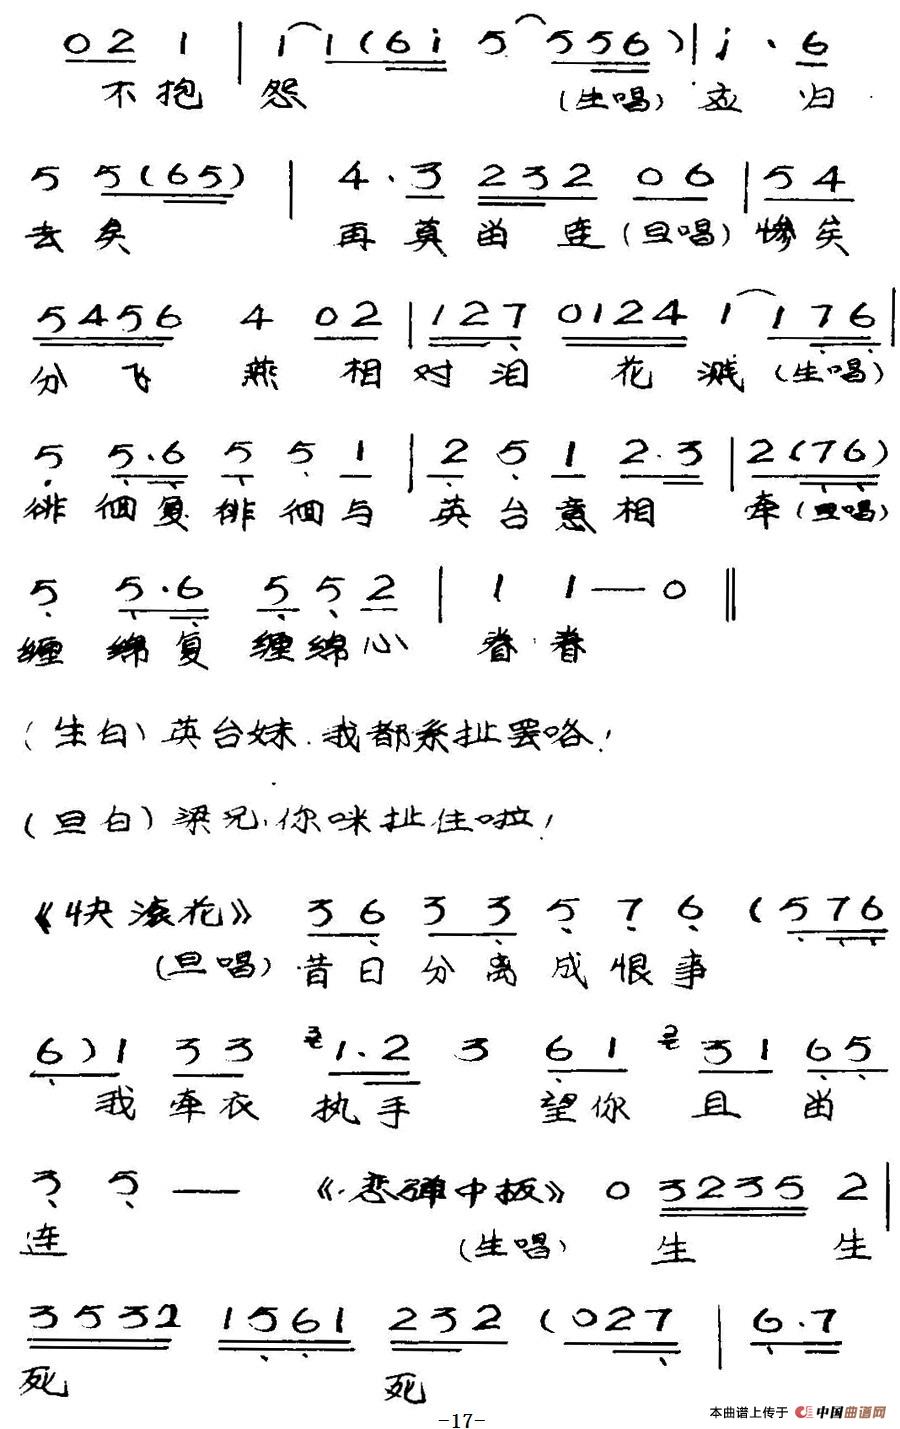 0 2 1 | 1 1 ( 6 i 5 5 5 6 ) | i · 6
不抱 怨 (生唱) 应 归
5 5 ( 6 5 ) | 4 · 3 2 3 2 0 6 | 5 4
去矣 再莫留连 (旦唱) 惨矣
5 4 5 6 4 0 2 | 1 2 7 0 1 2 4 1 1 7 6 |
分飞 燕 相对泪 花溅 (生唱)
5 5 · 6 5 5 1 | 2 5 1 2 · 3 | 2 ( 7 6 )
徘徊复徘徊与 英台意相 牵 (旦唱)
5 5 · 6 5 5 2 | 1 1 — 0 ‖
缠绵复缠绵心 眷眷
(生白) 英台妹.我都系扯罢咯!
(旦白) 梁兄.你咪扯住啦!
《快滚花》 3 6 3 3 5 7 6 ( 5 7 6
(旦唱) 昔日分离成恨事
6 ) 1 3 3 3 1 · 2 3 6 1 2 3 1 6 5
我牵衣 执手 望你 且 留
3 5 — 《恋弹中板》 0 3 2 3 5 2 |
连 (生唱) 生 生
3 5 3 2 1 5 6 1 2 3 2 ( 0 2 7 | 6 · 7
死 死
-17-
本曲谱上传于 中国曲谱网